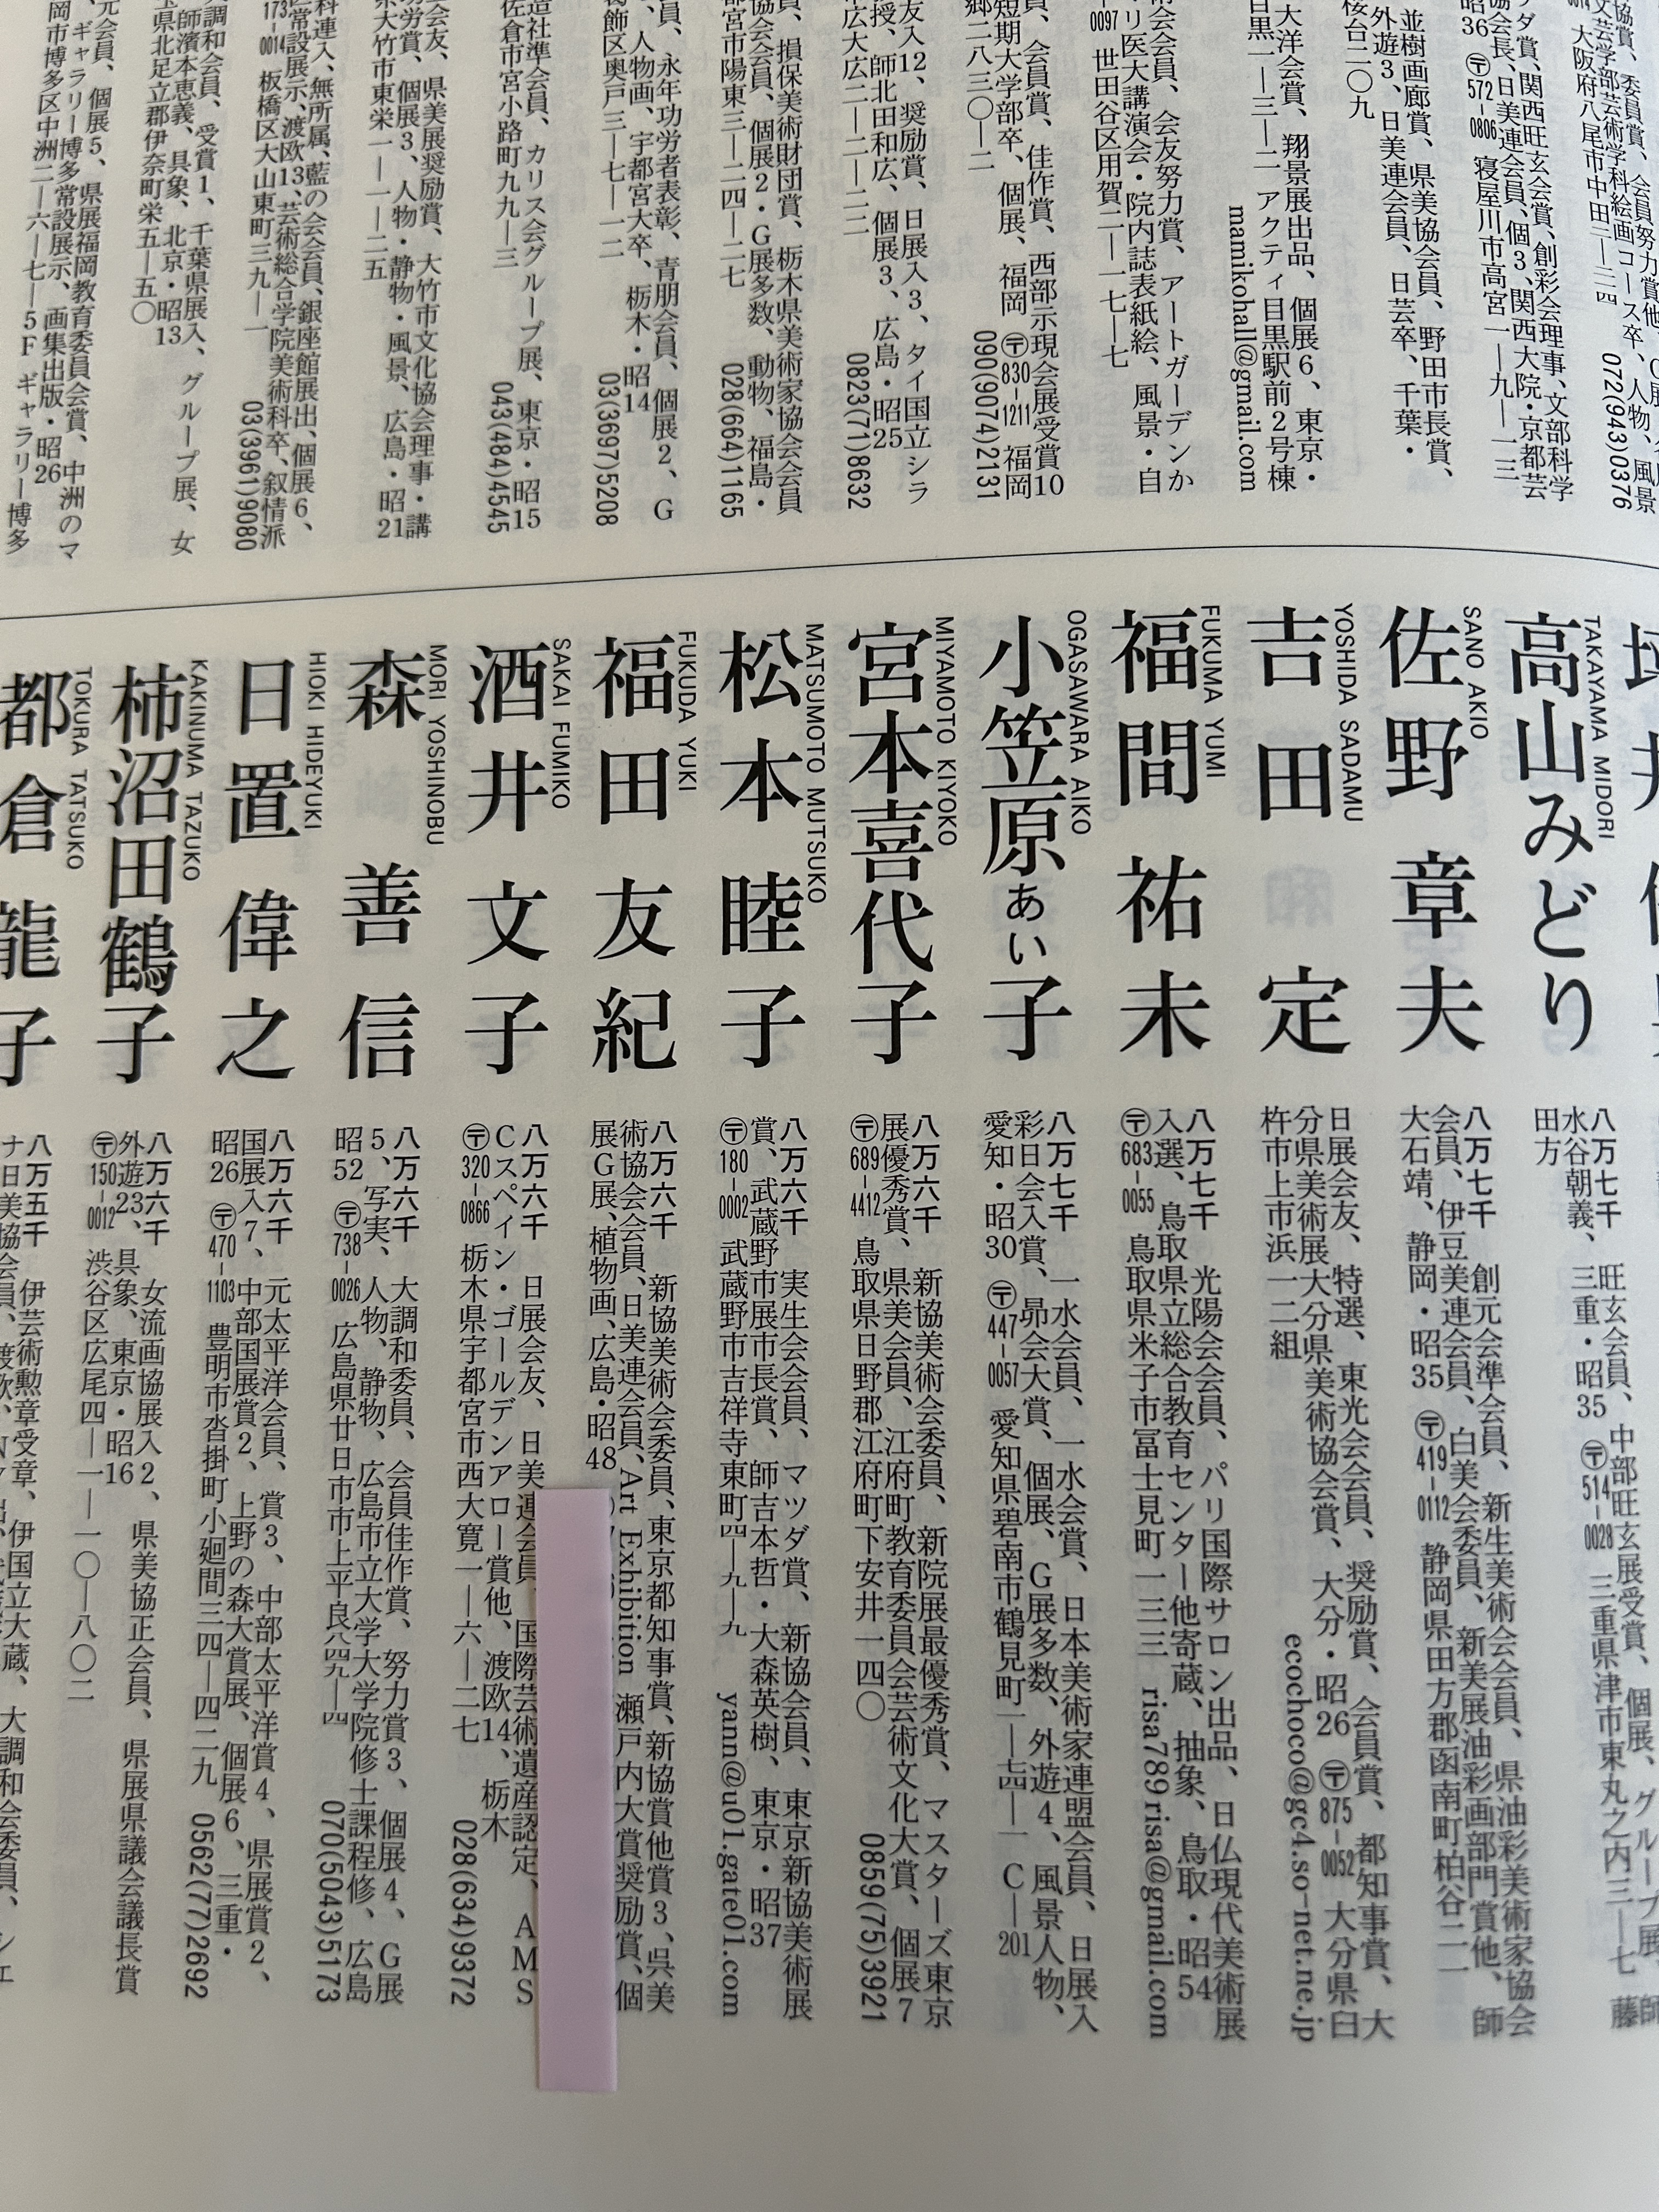 協賞、委員賞、会員努力賞他、
文芸学部芸術学科絵画コース卒、人物、風景
大阪府八尾市中田三―二四 072(943)0376
ダ賞、関西旺玄会賞、創彩会理事、文部科学
協会長、日美連会員、個3、関西大院・京都芸
昭36 〒572-0806 寝屋川市高宮一―九―一三
並樹画廊賞、県美協会員、野田市長賞、
外遊3、日美連会員、日芸卒、千葉・
桜台二〇九
大洋会賞、翔景展出品、個展6、東京・
目黒一―三―二 アクティ目黒駅前2号棟
mamikohall@gmail.com
会会員、会友努力賞、アートガーデンか
リ医大講演会・院内誌表紙絵、風景・自
0097 世田谷区用賀二―一七―七
員、会員賞、佳作賞、西部示現会展受賞10
短期大学部卒、個展、福岡 〒830-1211 福岡
郷二八三〇―二 090(9074)2131
友入12、奨励賞、日展入3、タイ国立シラ
授、師北田和広、個展3、広島・昭25
広大広二―二―二二 0823(71)8632
員、損保美術財団賞、栃木県美術家協会会員
協会会員、個展2・G展多数、動物、福島・
宮市陽東三―二四―二七 028(664)1165
員、永年功労者表彰、青朋会員、個展2、G
、人物画、宇都宮大卒、栃木・昭14
葛飾区奥戸三―七―一二 03(3697)5208
造社準会員、カリス会グループ展、東京・昭15
佐倉市宮小路町九九―三 043(484)4545
会友、県美展奨励賞、大竹市文化協会理事・講
功労賞、個展3、人物・静物・風景、広島・昭21
大竹市東栄一―一―二五
科連入、無所属、藍の会会員、銀座館展出、個展6、
常設展示、渡欧13、芸術総合学院美術科卒、叙情派
173-0014 板橋区大山東町三九―一 03(3961)9080
調和会員、受賞1、千葉県展入、グループ展、女
師濱本恵義、具象、北京・昭13
県北足立郡伊奈町栄五―五〇
元会員、個展5、県展福岡教育委員会賞、中洲のマ
、ギャラリー博多常設展示、画集出版・昭26
岡市博多区中洲二―六―七―5F ギャラリー博多
高山みどり
TAKAYAMA MIDORI
八万七千 旺玄会員、中部旺玄展受賞、個展、グループ展、師
水谷朝義、三重・昭35 〒514-0028 三重県津市東丸之内三―七 藤
田方
佐野章夫
SANO AKIO
八万七千 創元会準会員、新生美術会会員、県油彩美術家協会
会員、伊豆美連会員、白美会委員、新美展油彩画部門賞他、師
大石靖、静岡・昭35 〒419-0112 静岡県田方郡函南町柏谷二一
吉田定
YOSHIDA SADAMU
日展会友、特選、東光会会員、奨励賞、会員賞、都知事賞、大
分県美術展大分県美術協会賞、大分・昭26 〒875-0052 大分県臼
杵市上市浜一二組 ecochoco@gc4.so-net.ne.jp
福間祐未
FUKUMA YUMI
八万七千 光陽会会員、パリ国際サロン出品、日仏現代美術展
入選、鳥取県立総合教育センター他寄蔵、抽象、鳥取・昭54
〒683-0055 鳥取県米子市冨士見町一三三 risa789risa@gmail.com
小笠原あい子
OGASAWARA AIKO
八万七千 一水会員、一水会賞、日本美術家連盟会員、日展入
彩日会入賞、昴会大賞、個展、G展多数、外遊4、風景人物、
愛知・昭30 〒447-0057 愛知県碧南市鶴見町一―七四―一 C―201
宮本喜代子
MIYAMOTO KIYOKO
八万六千 新協美術会委員、新院展最優秀賞、マスターズ東京
展優秀賞、県美会員、江府町教育委員会芸術文化大賞、個展7
〒689-4412 鳥取県日野郡江府町下安井一四〇 0859(75)3921
松本睦子
MATSUMOTO MUTSUKO
八万六千 実生会会員、マツダ賞、新協会員、東京新協美術展
賞、武蔵野市展市長賞、師吉本哲・大森英樹、東京・昭37
〒180-0002 武蔵野市吉祥寺東町四―九―九 yann@u01.gate01.com
福田友紀
FUKUDA YUKI
八万六千 新協美術会委員、東京都知事賞、新協賞他賞3、呉美
術協会会員、日美連会員、Art Exhibition 瀬戸内大賞奨励賞、個
展G展、植物画、広島・昭48
酒井文子
SAKAI FUMIKO
八万六千 日展会友、日美連会員、国際芸術遺産認定、AMS
Cスペイン・ゴールデンアロー賞他、渡欧14、栃木
〒320-0866 栃木県宇都宮市西大寛一―六―二七 028(634)9372
森善信
MORI YOSHINOBU
八万六千 大調和委員、会員佳作賞、努力賞3、個展4、G展
5、写実、人物、静物、広島市立大学大学院修士課程修、広島
昭52 〒738-0026 広島県廿日市市上平良八四九―四 070(5043)5173
日置偉之
HIOKI HIDEYUKI
八万六千 元太平洋会員、賞3、中部太平洋賞4、県展賞2、
国展入7、中部国展賞2、上野の森大賞展、個展6、三重・
昭26 〒470-1103 豊明市沓掛町小廻間三四―四二九 0562(77)2692
柿沼田鶴子
KAKINUMA TAZUKO
八万六千 女流画協展入2、県美協正会員、県展県議会議長賞
外遊23、具象、東京・昭16
〒150-0012 渋谷区広尾四―一―一〇―八〇二
都倉龍子
TOKURA TATSUKO
八万五千 伊芸術勲章受章、伊国立大蔵、大調和会委員、